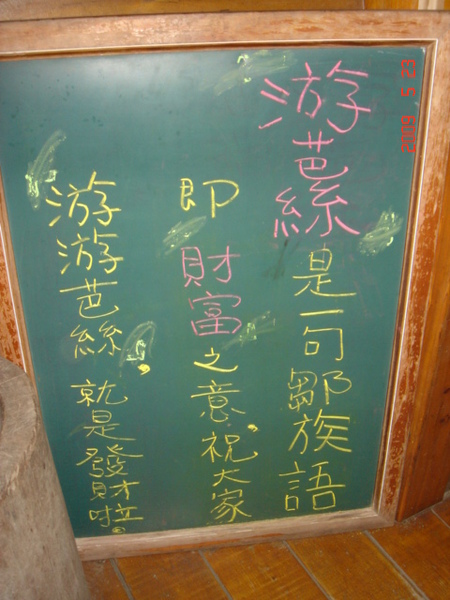 游芭絲是一句鄒族語
即財富之意,祝大家
游游芭絲,就是發財啦。
2009 5 23